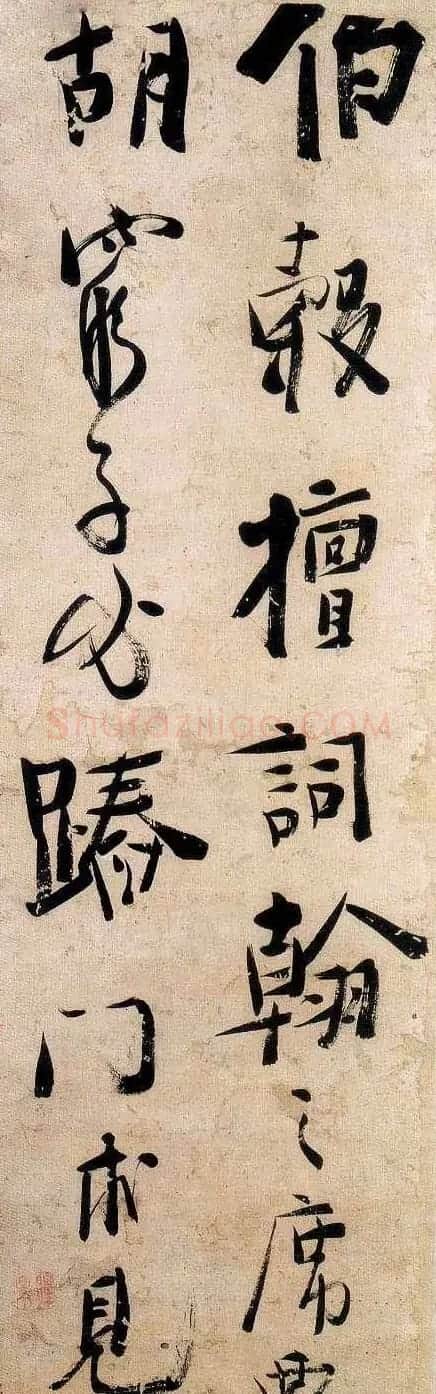 伯穀擅詞翰之席
胡子必踵門求見
Shufaziliao.COM